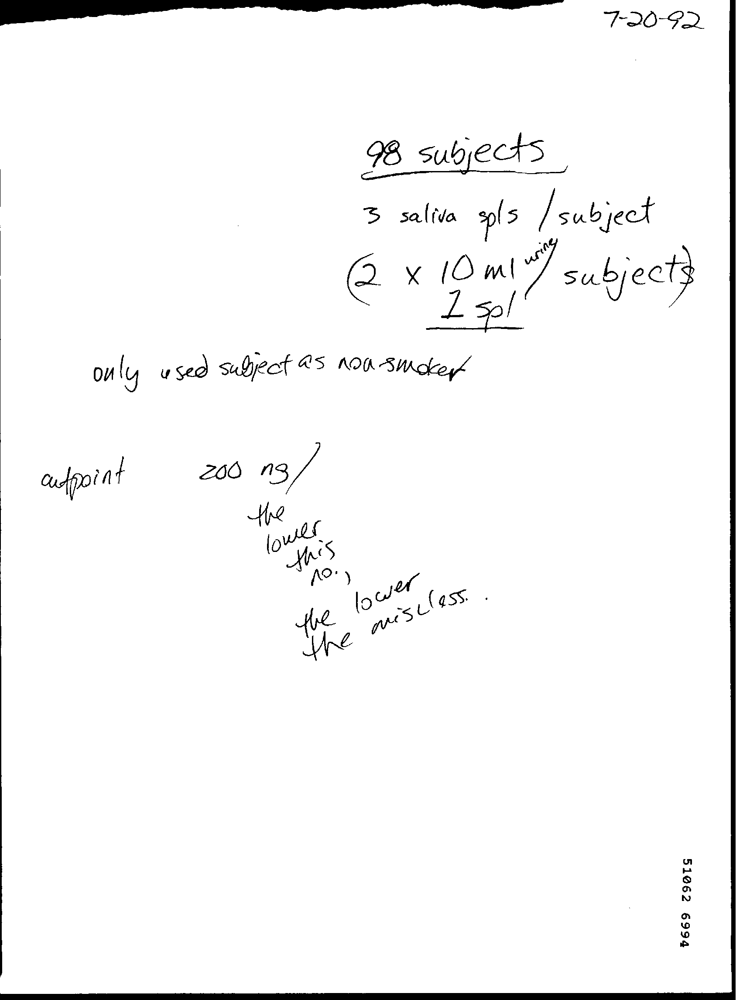 7-20-92
98 subjects
3 saliva spls / subject
(2 x 10 ml urine / subjects)
1 spl
only used subject as non-smoker
cutpoint 200 ng/
the
lower
this
no.,
the lower
the misclass.
51062 6994